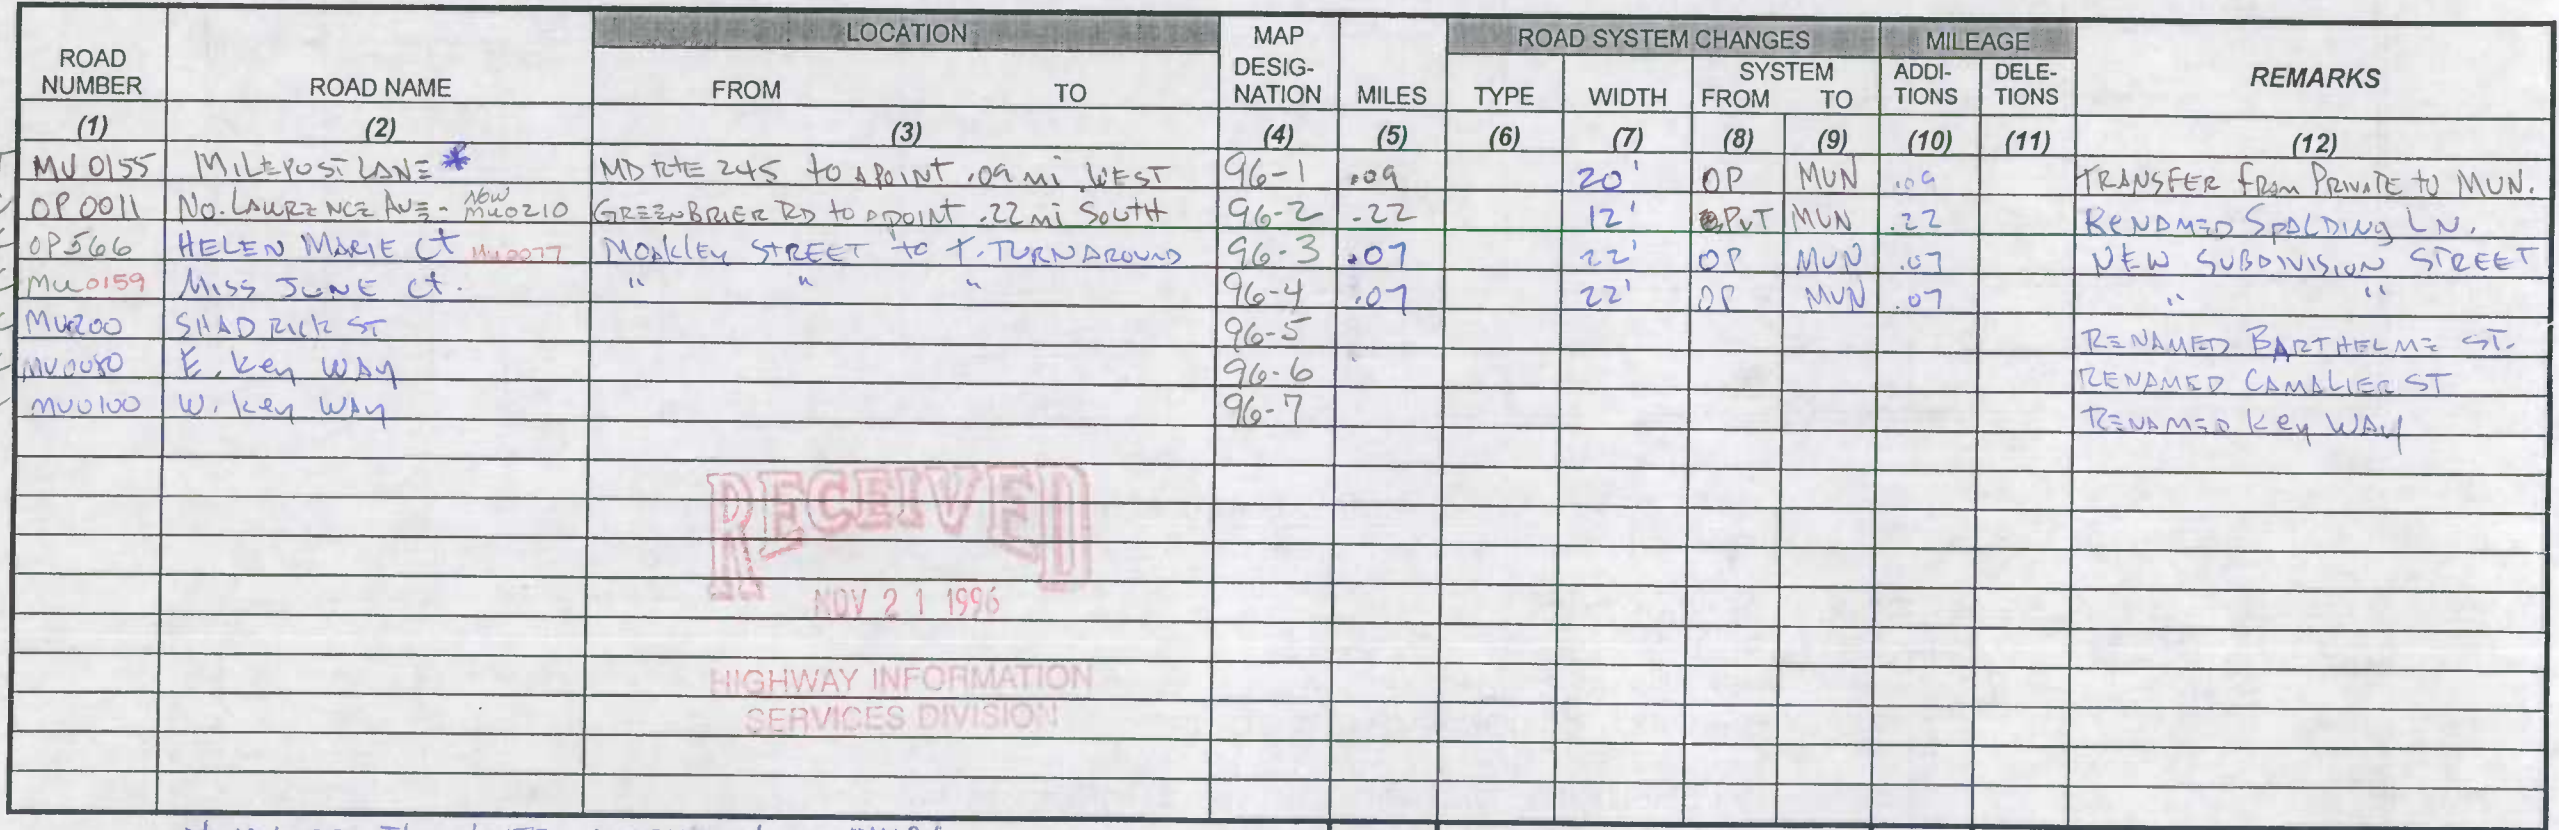 LOCATION
ROAD SYSTEM CHANGES
MILEAGE
ROAD NUMBER
ROAD NAME
FROM TO
MAP DESIG-NATION
MILES
TYPE
WIDTH
SYSTEM
FROM TO
ADDI-TIONS
DELE-TIONS
REMARKS
(1) (2) (3) (4) (5) (6) (7) (8) (9) (10) (11) (12)
MU 0155 MILEPOST LANE * MD RTE 245 to A POINT .09 mi WEST 96-1 .09 20' OP MUN .09 TRANSFER from PRIVATE to MUN.
OP 0011 No. LAWRENCE AVE - NOW MU0210 GREENBRIER RD to A POINT .22 mi South 96-2 .22 12' PVT MUN .22 RENAMED SPALDING LN.
OP566 HELEN MARIE Ct MU0077 MOAKLEY STREET to T. TURNAROUND 96-3 .07 22' OP MUN .07 NEW SUBDIVISION STREET
Mu0159 MISS JUNE Ct. " " " 96-4 .07 22' OP MUN .07 " "
MU200 SHADRICK ST 96-5 RENAMED BARTHELME ST.
MU0080 E. Key WAY 96-6 RENAMED CAMALIER ST
MU0100 W. Key WAY 96-7 RENAMED Key WAY
RECEIVED
NOV 21 1996
HIGHWAY INFORMATION
SERVICES DIVISION